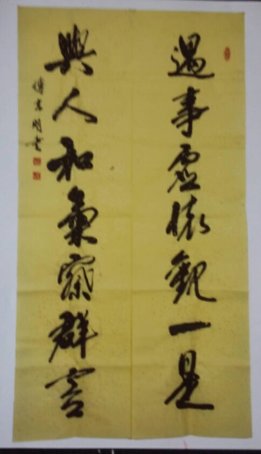 遇事虚懷觀一是
與人和氣察群言